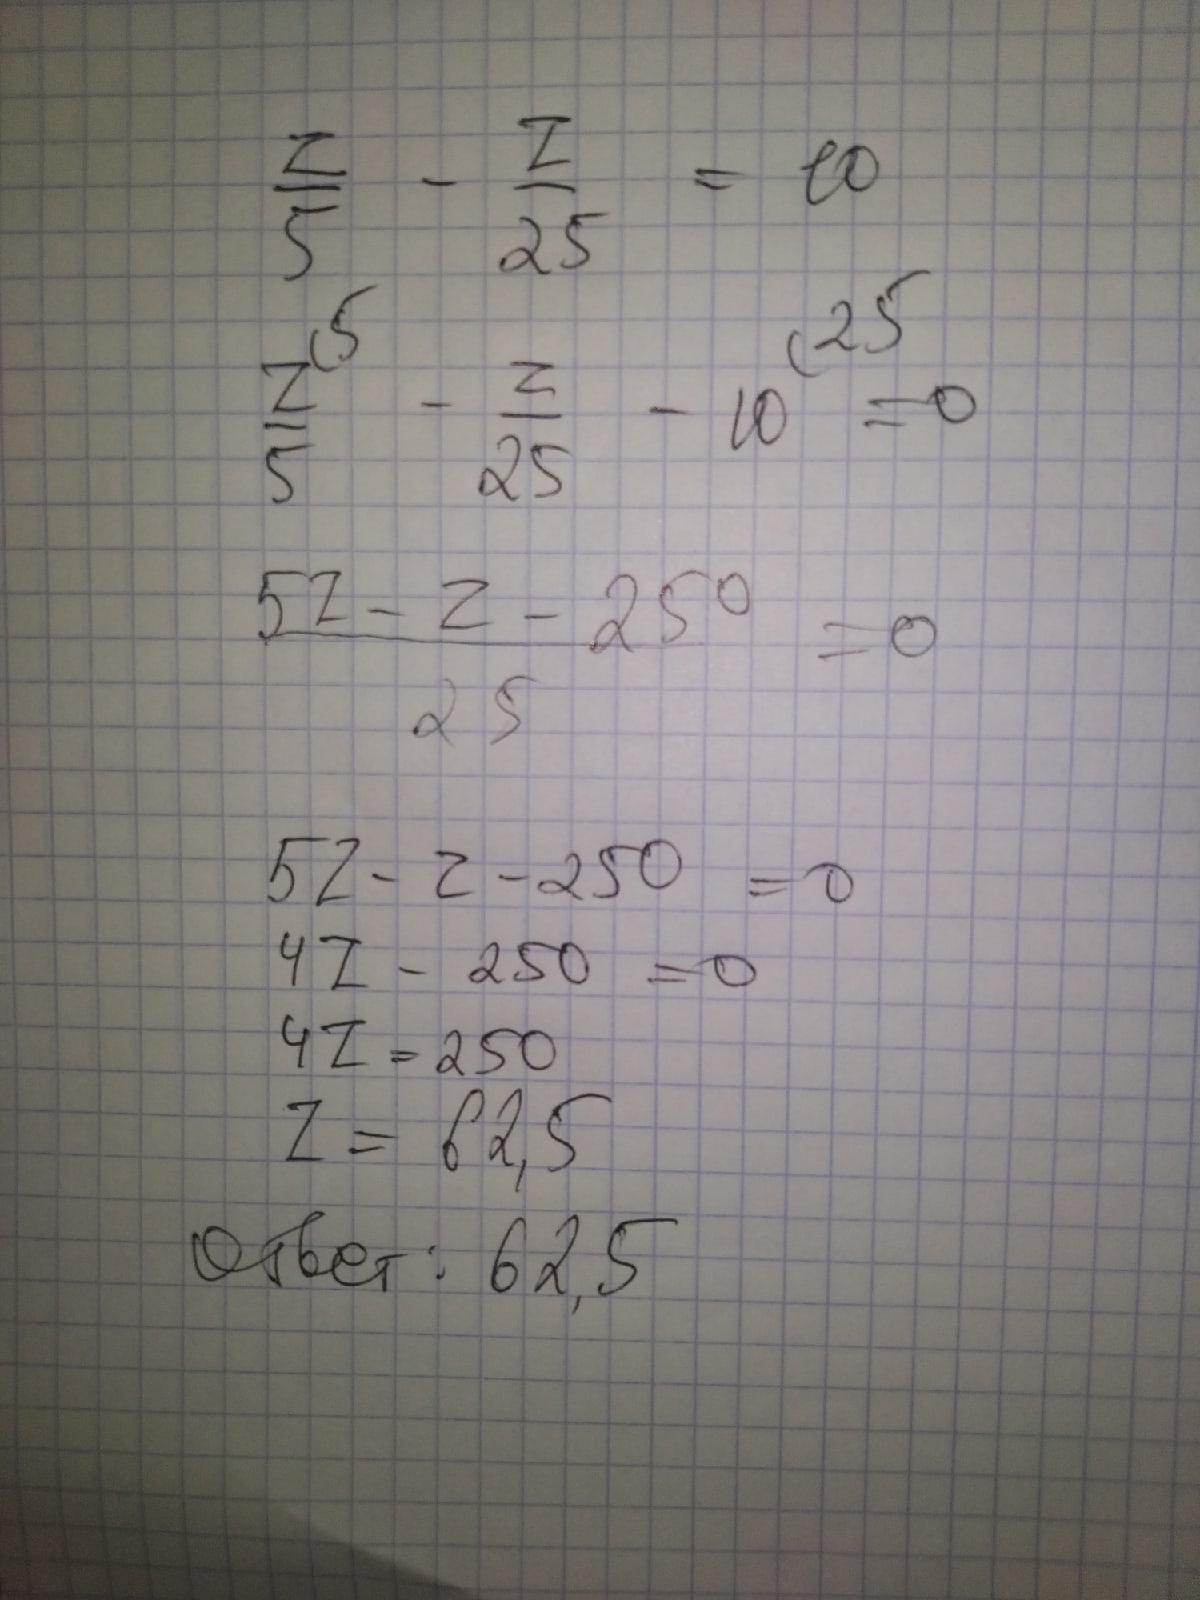 z/5 - z/25 = 10
z/5 (5 - z/25 - 10 (25 = 0
5z - z - 250 / 25 = 0
5z - z - 250 = 0
4z - 250 = 0
4z = 250
z = 62,5
Ответ: 62,5